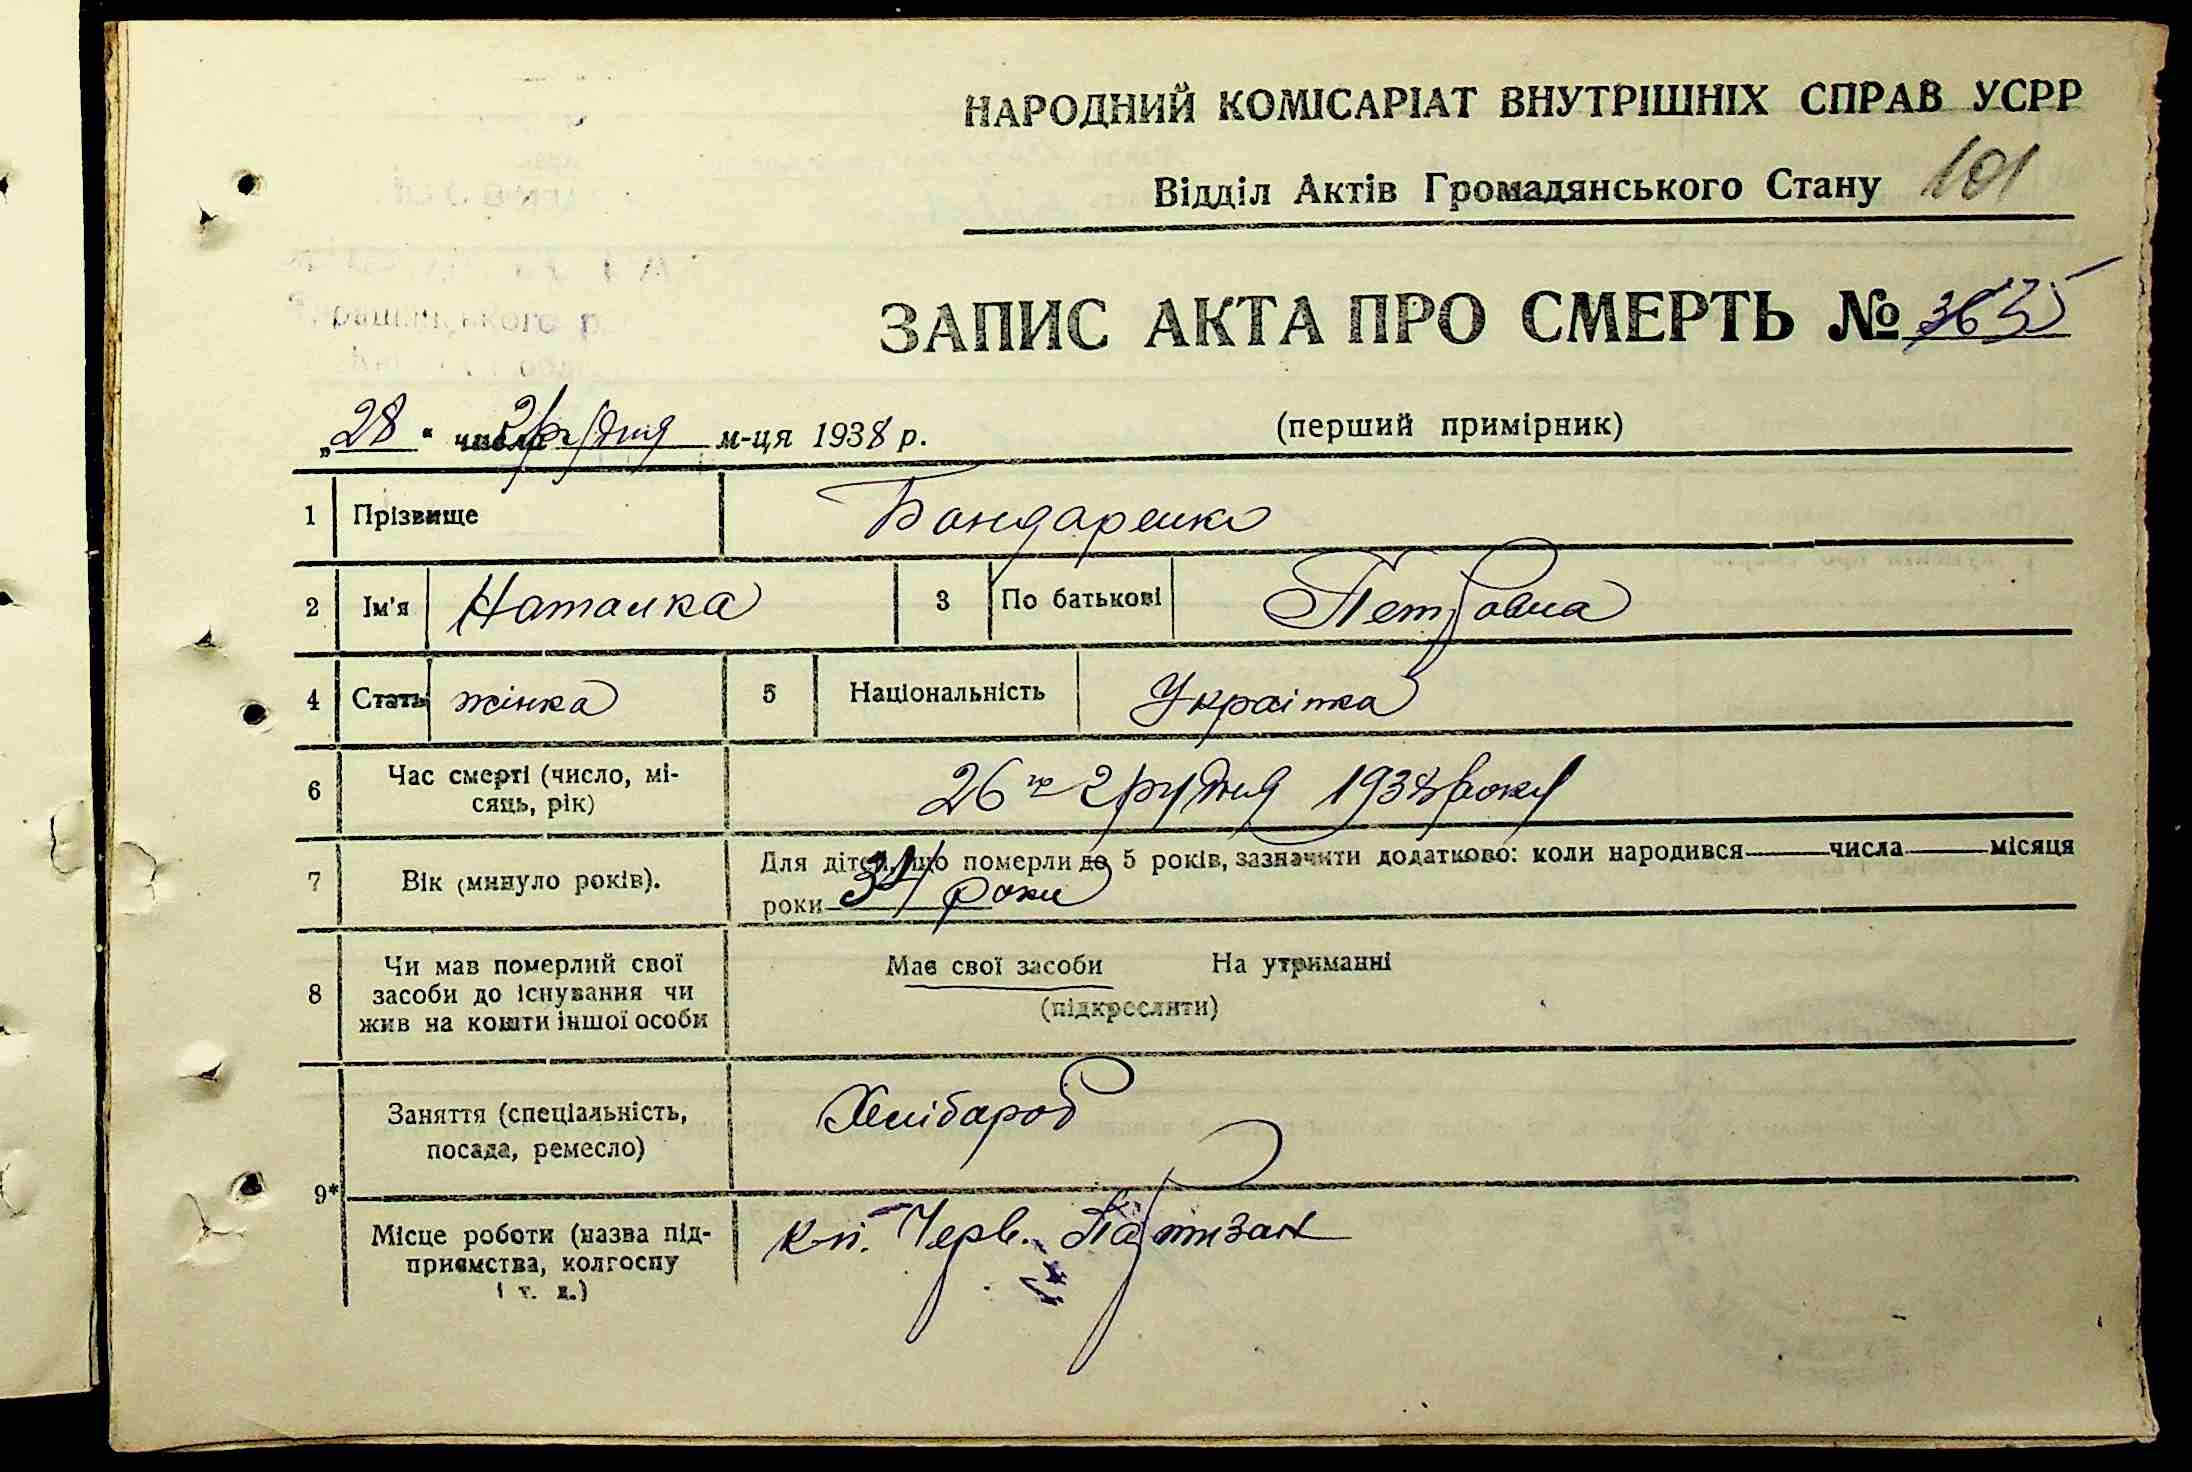 НАРОДНИЙ КОМІСАРІАТ ВНУТРІШНІХ СПРАВ УСРР
Відділ Актів Громадянського Стану 101
ЗАПИС АКТА ПРО СМЕРТЬ №
„28“ числа грудня м-ця 1938 р. (перший примірник)
1 Прізвище Бондаренко
2 Ім'я Наталка 3 По батькові Петровна
4 Стать жінка 5 Національність Українка
6 Час смерті (число, мі-
сяць, рік) 26 грудня 1938 року
7 Вік (минуло років). Для дітей, що померли до 5 років, зазначити додатково: коли народився числа місяця
роки 34 роки
8 Чи мав померлий свої
засоби до існування чи
жив на кошти іншої особи
Має свої засоби На утриманні
(підкреслити)
9* Заняття (спеціальність,
посада, ремесло) Хлібароб
Місце роботи (назва під-
приємства, колгоспу
і т. д.) Черв. Партизан